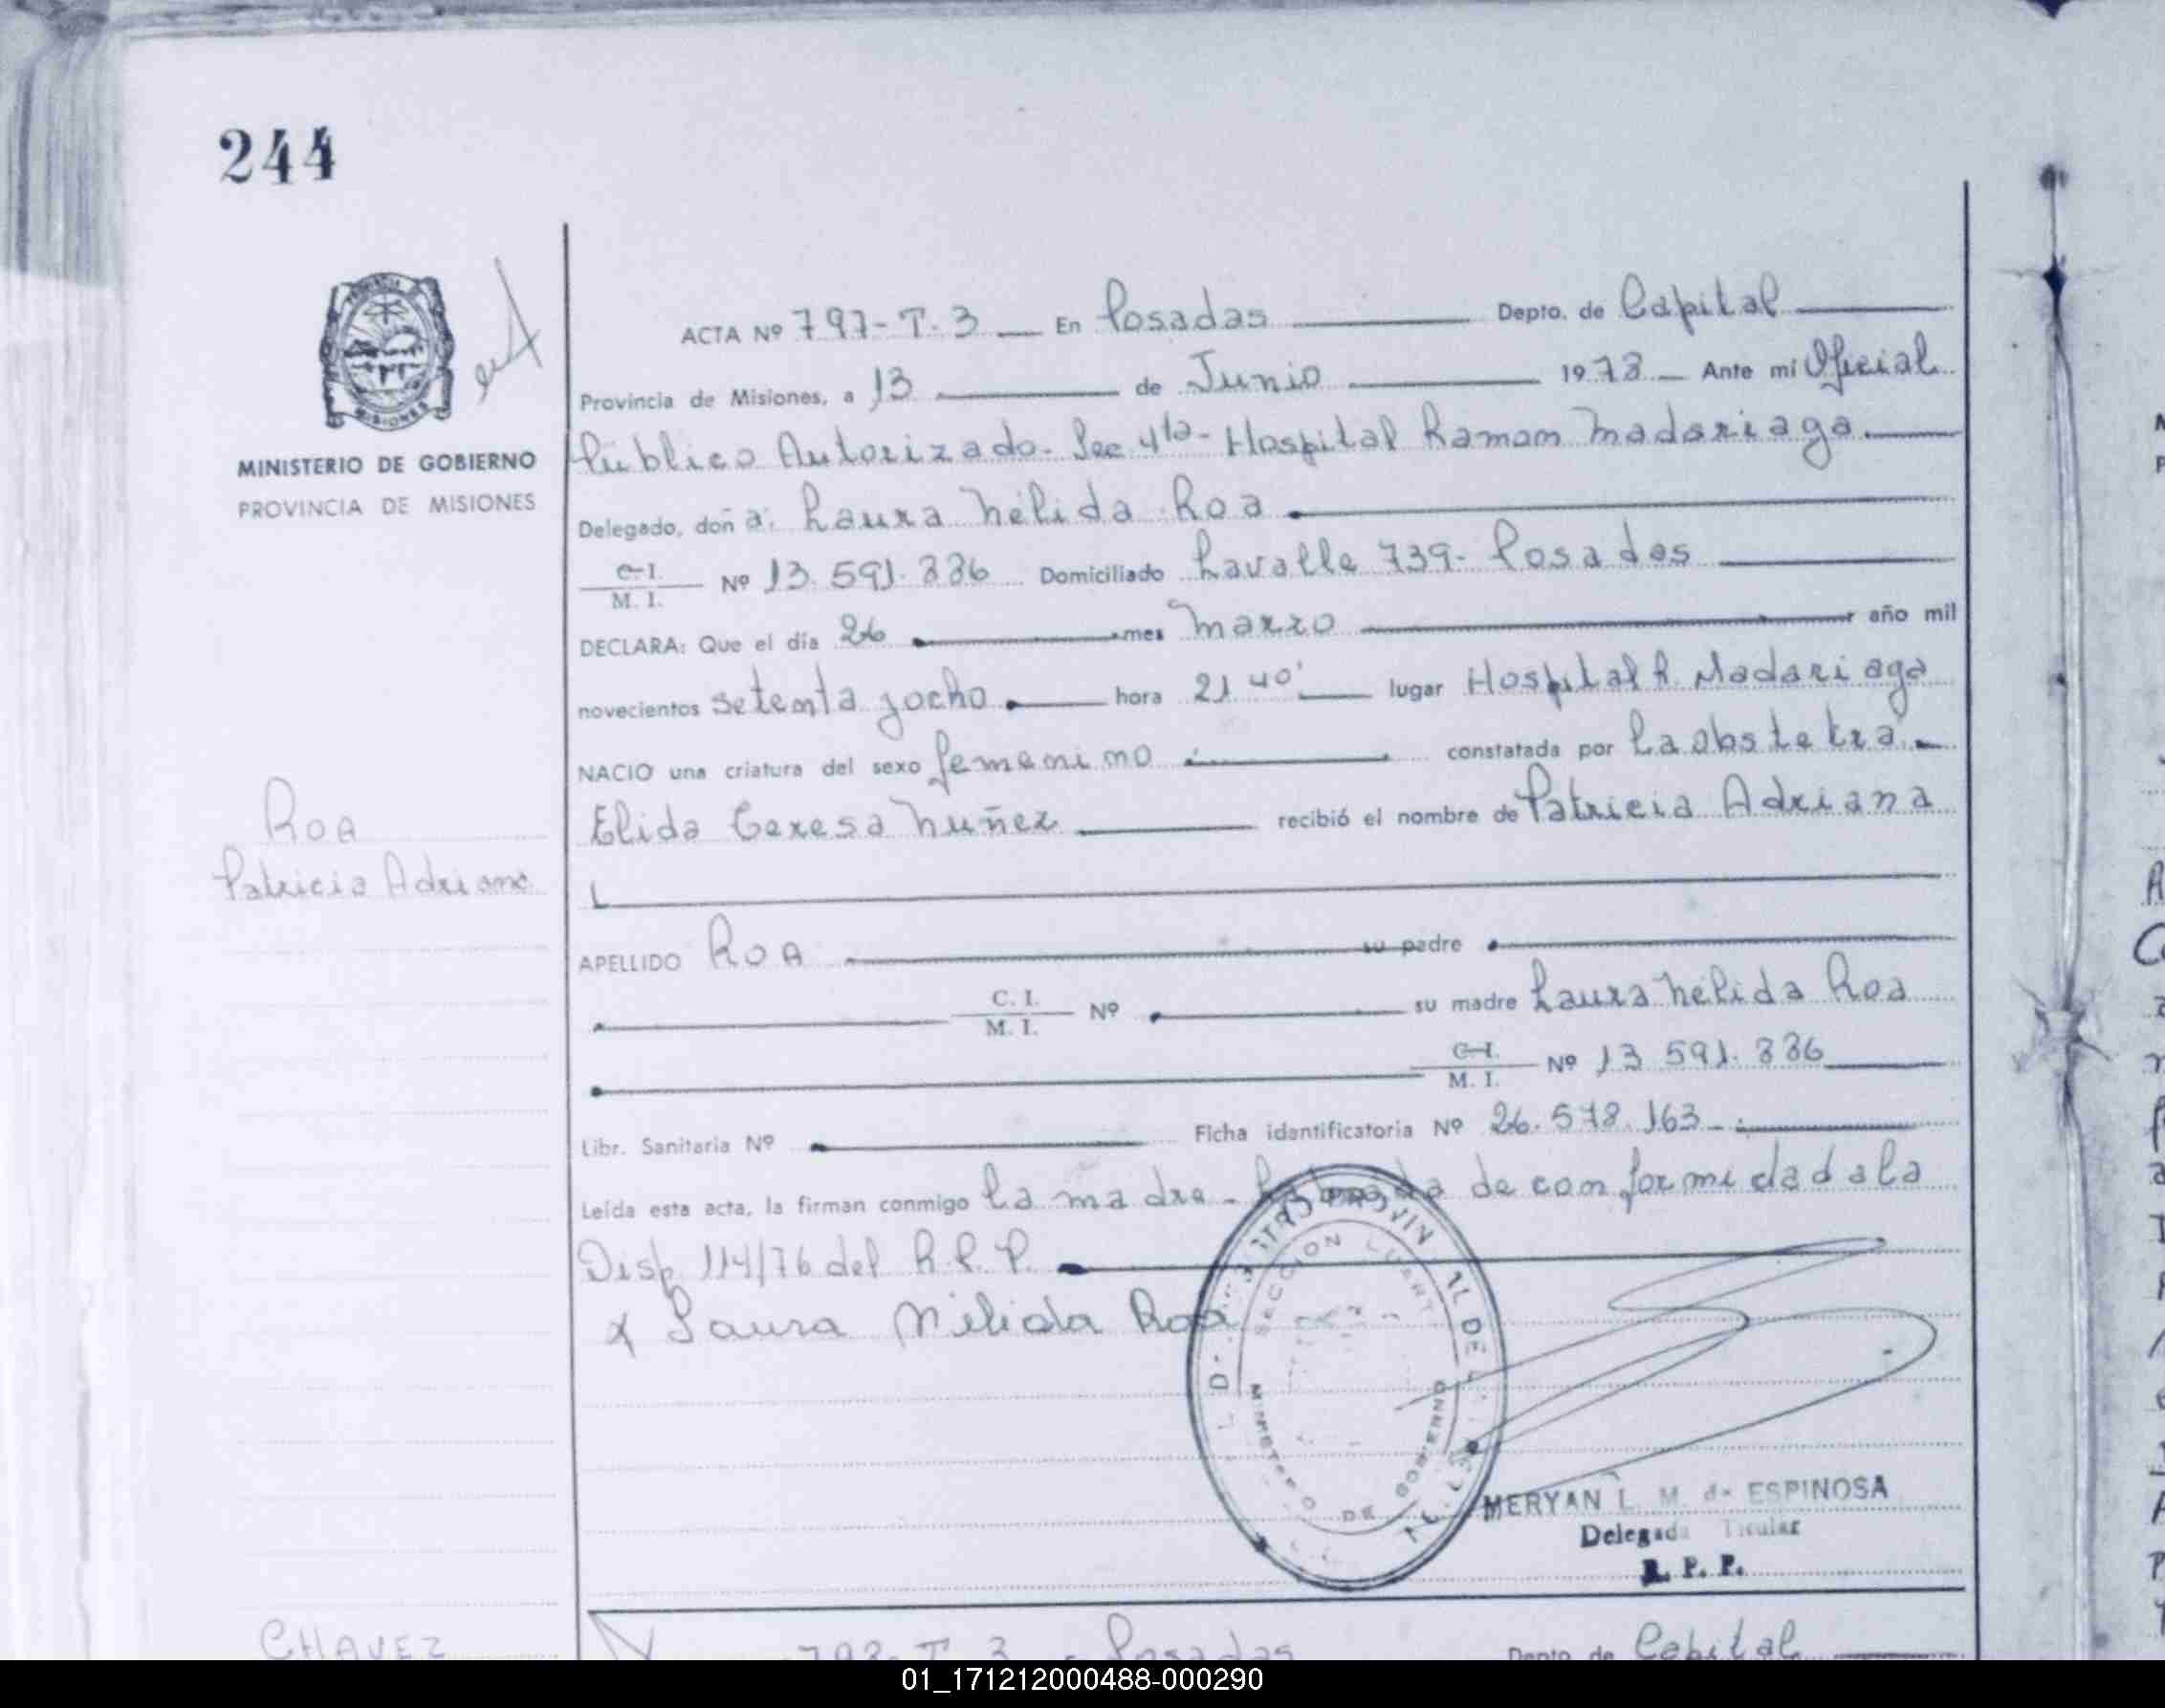 244
ACTA Nº 797-T.3 En Posadas Depto. de Capital
Provincia de Misiones, a 13 de Junio 1978 Ante mí Oficial
MINISTERIO DE GOBIERNO
PROVINCIA DE MISIONES
Público Autorizado. Sec. 4ta - Hospital Ramon Madariaga
Delegado, doña: Laura Nélida Roa
C.I. M. I. Nº 13.591.886 Domiciliado Lavalle 739- Posadas
DECLARA: Que el día 26 mes Marzo año mil
novecientos setenta y ocho hora 21 40' lugar Hospital R. Madariaga
NACIO una criatura del sexo femenino constatada por la obstetra
Elida Teresa Nuñez recibió el nombre de Patricia Adriana
Roa
Patricia Adriana
APELLIDO ROA su padre
C. I. M. I. Nº su madre Laura Nélida Roa
C.I. M. I. Nº 13 591.886
Libr. Sanitaria Nº Ficha identificatoria Nº 26.578.163
Leída esta acta, la firman conmigo la madre - de conformidad a la
Disp. 114/76 del R.P.P.
x Laura Nélida Roa
SECCION
MINISTERIO DE GOBIERNO
MERYAN L. M. de ESPINOSA
Delegada Titular
R. P. P.
CHAVEZ
798-T 3 Posadas Depto de Capital
01_171212000488-000290